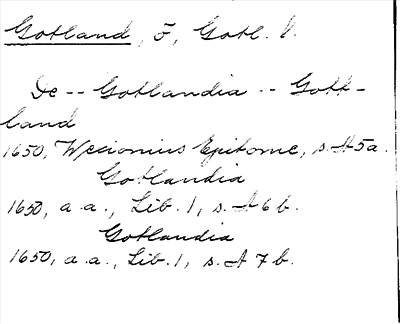 Gotland, ö, Gotl. l.
De -- Gotlandia -- Gott-
land
1650, Wexionius Epitome, s. A5a.
Gotlandia
1650, a.a., Lib. 1, s. A6b.
Gotlandia
1650, a.a., Lib. 1, s. A7b.